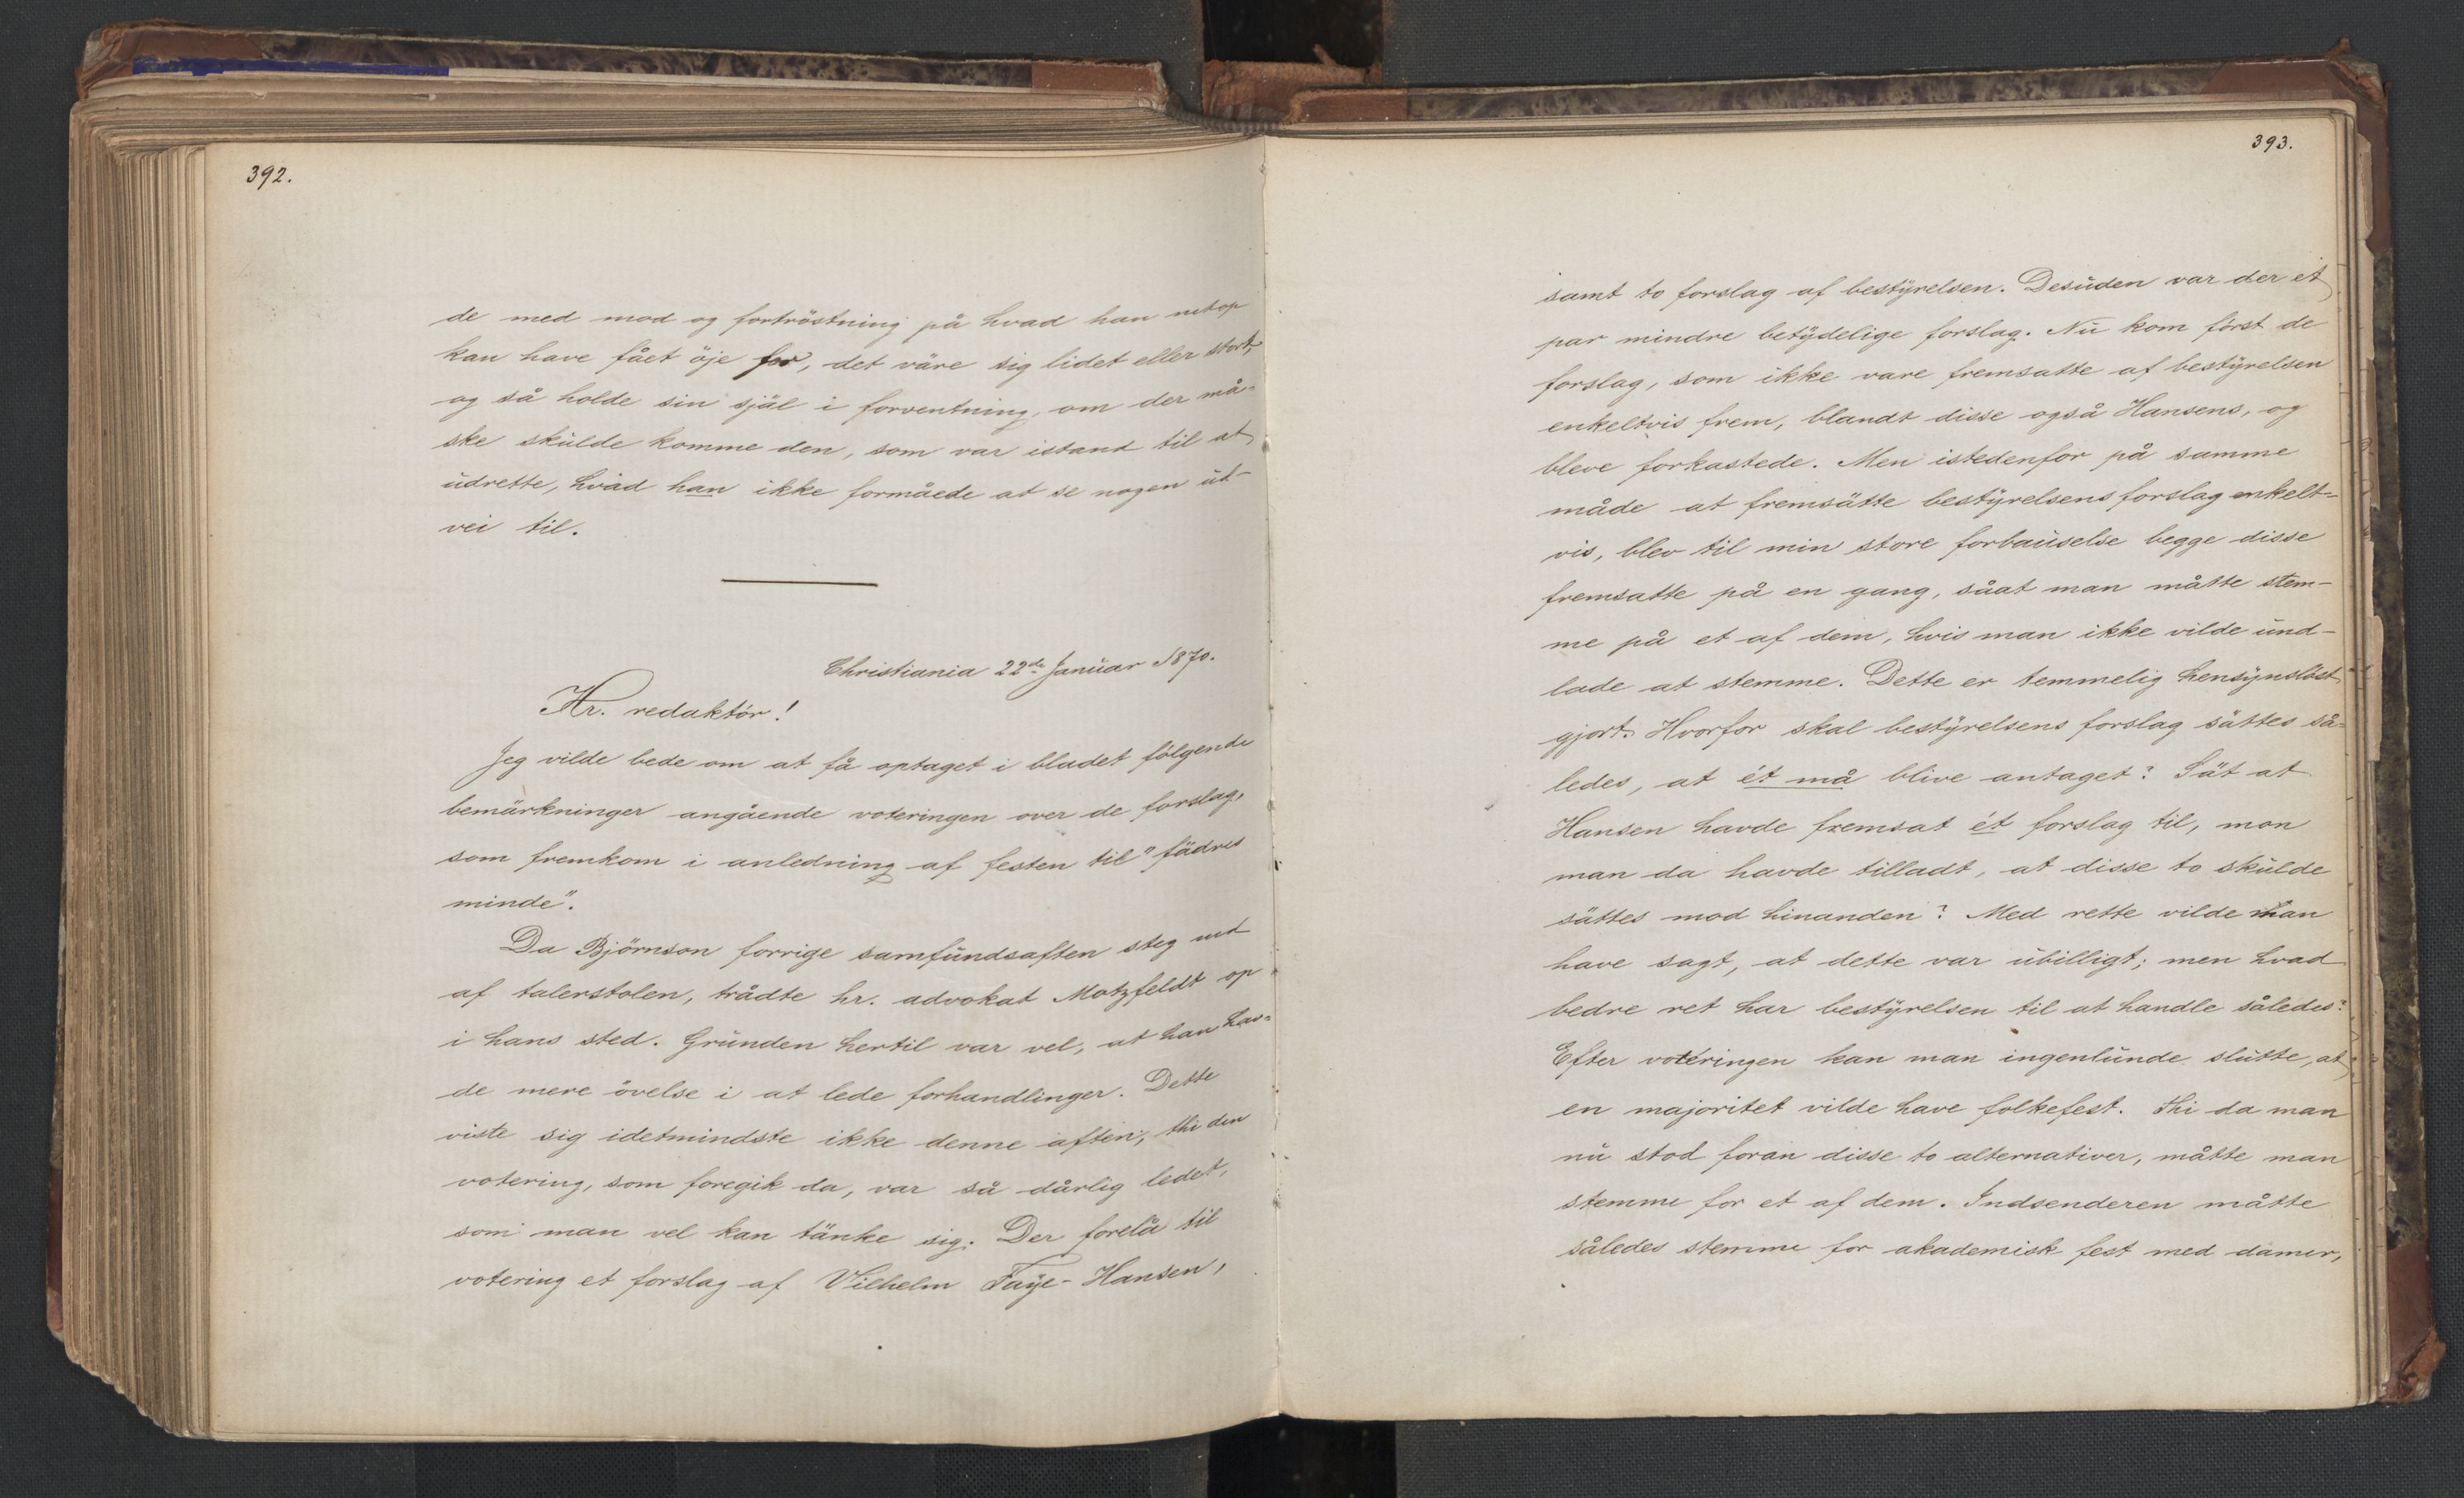 392.
de med mod og fortröstning på hvad han netop
kan have fået öje for, det väre sig lidet eller stort,
og så holde sin själ i forventning, om der må-
ske skulde komme den, som var istand til at
udrette, hvad han ikke formåede at se nogen ud-
vei til.
Christiania 22de Januar 1870.
Hr. redaktör!
Jeg vilde bede om at få optaget i bladet fölgende
bemärkninger angående voteringen over de forslag,
som fremkom i anledning af festen til "fädres
minde".
Da Björnson forrige samfundsaften steg ned
af talerstolen, trådte hr. advokat Motzfeldt op
i hans sted. Grunden hertil var vel, at han hav-
de mere övelse i at lede forhandlinger. Dette
viste sig idetmindste ikke denne aften; thi den
votering, som foregik da, var så dårlig ledet,
som man vel kan tänke sig. Der forelå til
votering et forslag af Vilhelm Faye-Hansen,
393.
samt to forslag af bestyrelsen. Desuden var der et
par mindre betydelige forslag. Nu kom först de
forslag, som ikke vare fremsatte af bestyrelsen
enkeltvis frem, blandt disse også Hansens, og
bleve forkastede. Men istedenfor på samme
måde at fremsätte bestyrelsens forslag enkelt-
vis, blev til min store forbauselse begge disse
fremsatte på en gang, såat man måtte stem-
me på et af dem, hvis man ikke vilde und-
lade at stemme. Dette er temmelig hensynslöst
gjort. Hvorfor skal bestyrelsens forslag sättes så-
ledes, at ét må blive antaget? Sät at
Hansen havde fremsat ét forslag til, mon
man da havde tilladt, at disse to skulde
sättes mod hinanden? Med rette vilde man
have sagt, at dette var ubilligt; men hvad
bedre ret har bestyrelsen til at handle således?
Efter voteringen kan man ingenlunde slutte, at
en majoritet vilde have folkefest. Thi da man
nu stod foran disse to alternativer, måtte man
stemme for et af dem. Indsenderen måtte
således stemme for akademisk fest med damer,